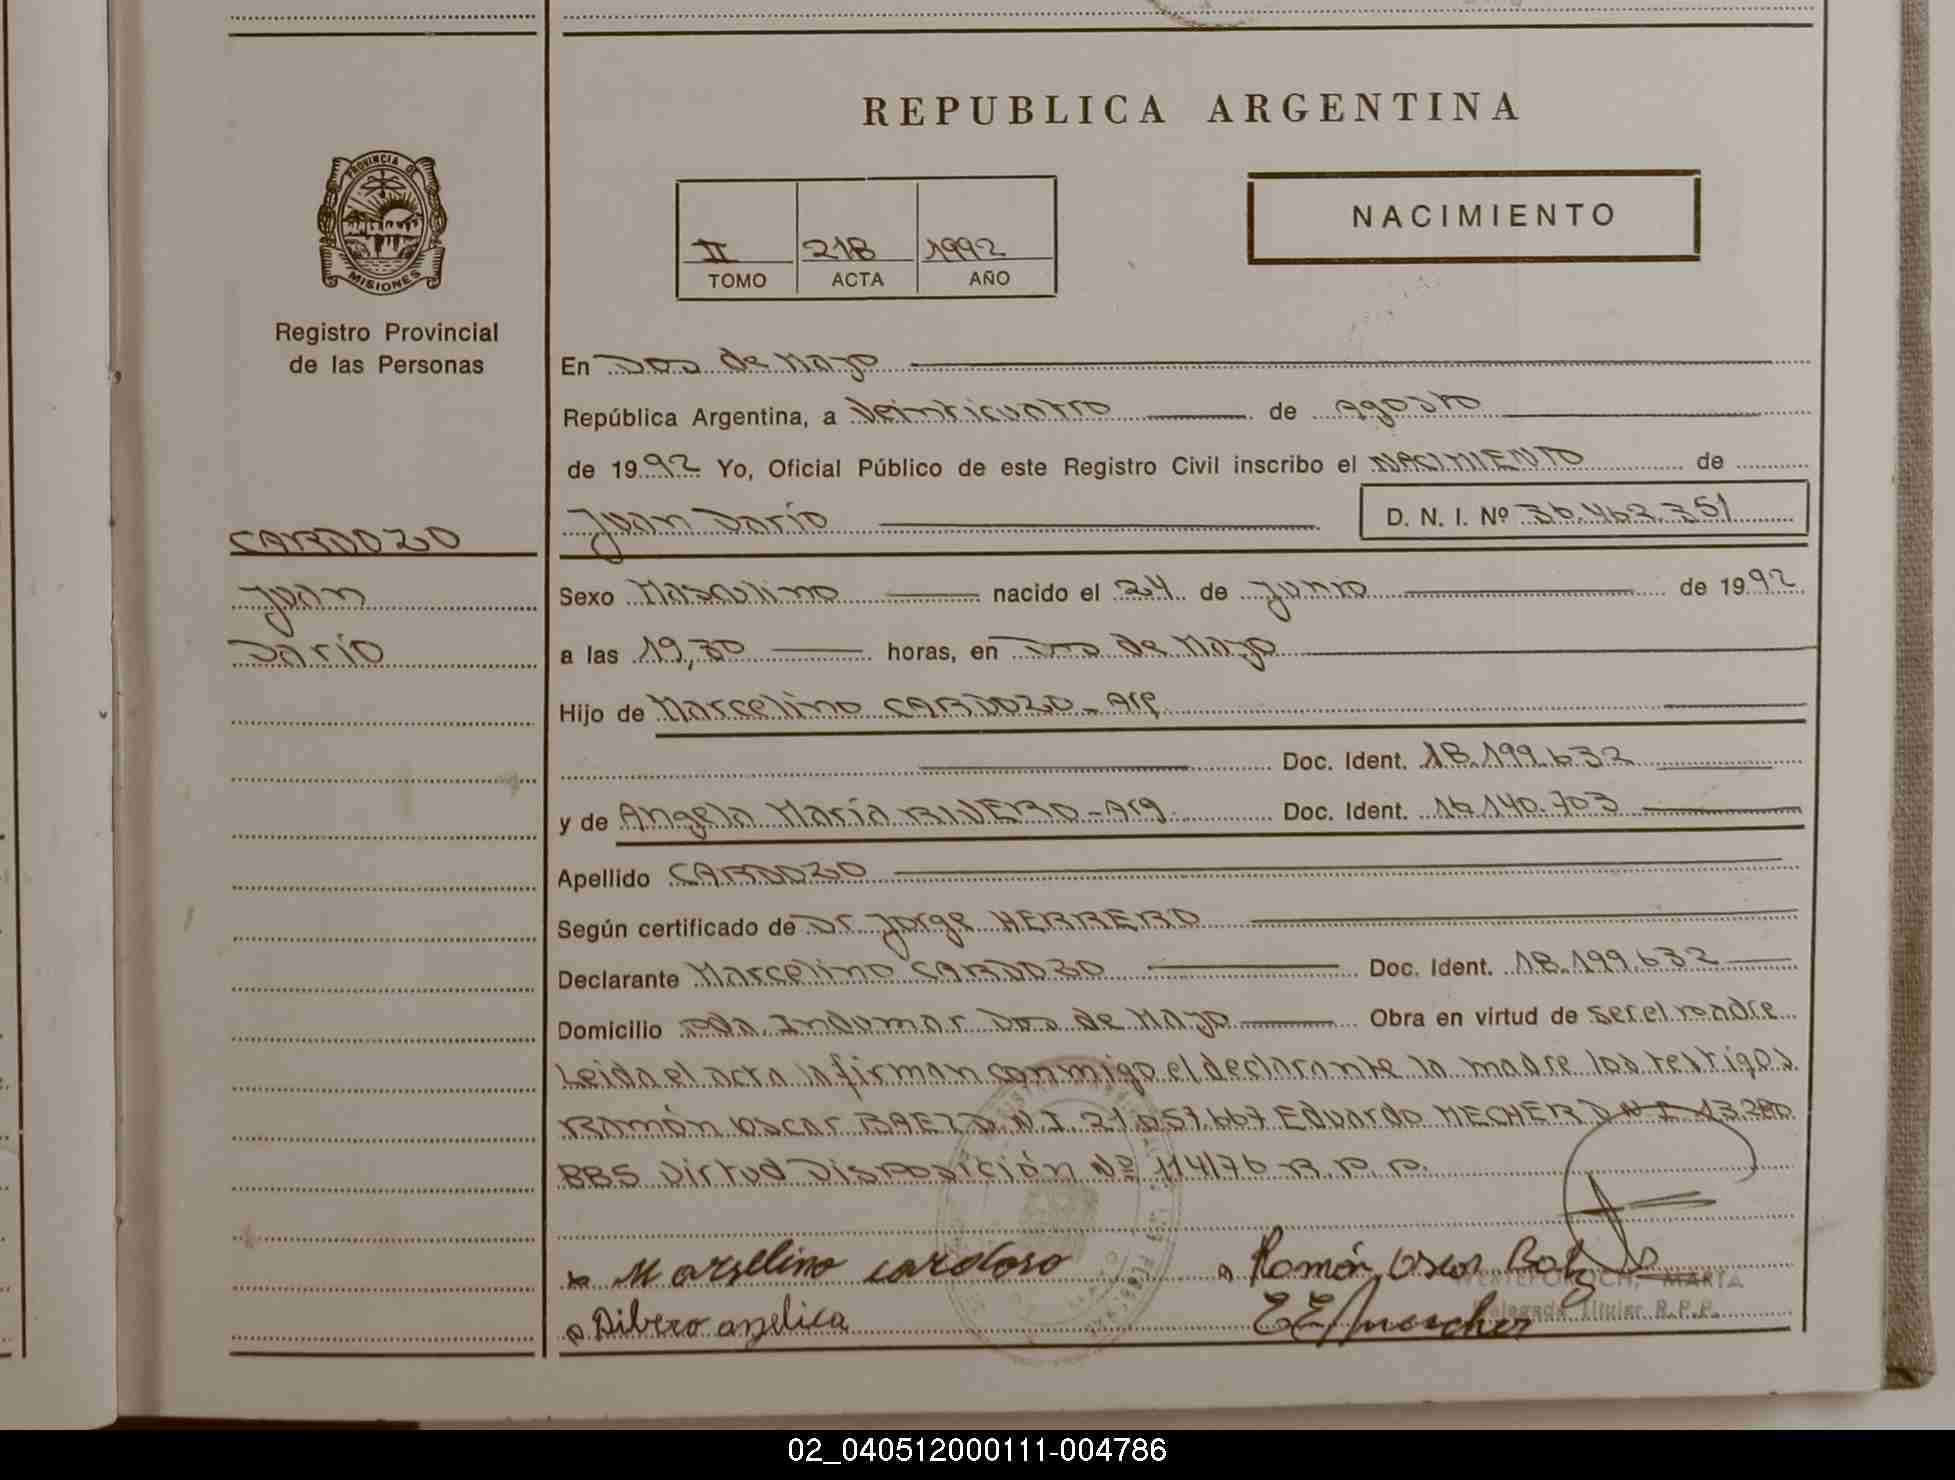 REPUBLICA ARGENTINA
PROVINCIA DE
MISIONES
Registro Provincial
de las Personas
NACIMIENTO
II 218 1992
TOMO ACTA AÑO
CARDOZO
Juan
Darío
En Dos de Mayo
República Argentina, a Veinticuatro de Agosto
de 1992 Yo, Oficial Público de este Registro Civil inscribo el NACIMIENTO de
Juan Darío D. N. I. Nº 36.462.351
Sexo Masculino nacido el 24 de Junio de 1992
a las 19,30 horas, en Dos de Mayo
Hijo de Marcelino CARDOZO - Arg
Doc. Ident. 18.199.632
y de Angela María RIVERO - Arg. Doc. Ident. 16.140.703
Apellido CARDOZO
Según certificado de Dr Jorge HERRERO
Declarante Marcelino CARDOZO Doc. Ident. 18.199.632
Domicilio Indumar Dos de Mayo Obra en virtud de ser el padre
Leida el acta la firman conmigo el declarante la madre los testigos
Ramón Oscar BAEZ D.N.I. 21.057.667 Eduardo MECHER D.N.I. 13.280
885 Virtud Disposición Nº 114/76 R.P.P.
Marsellino cardoso Ramón Oscar
Ribero anjelica
MARIA
Delegada Titular R.P.P.
02_040512000111-004786